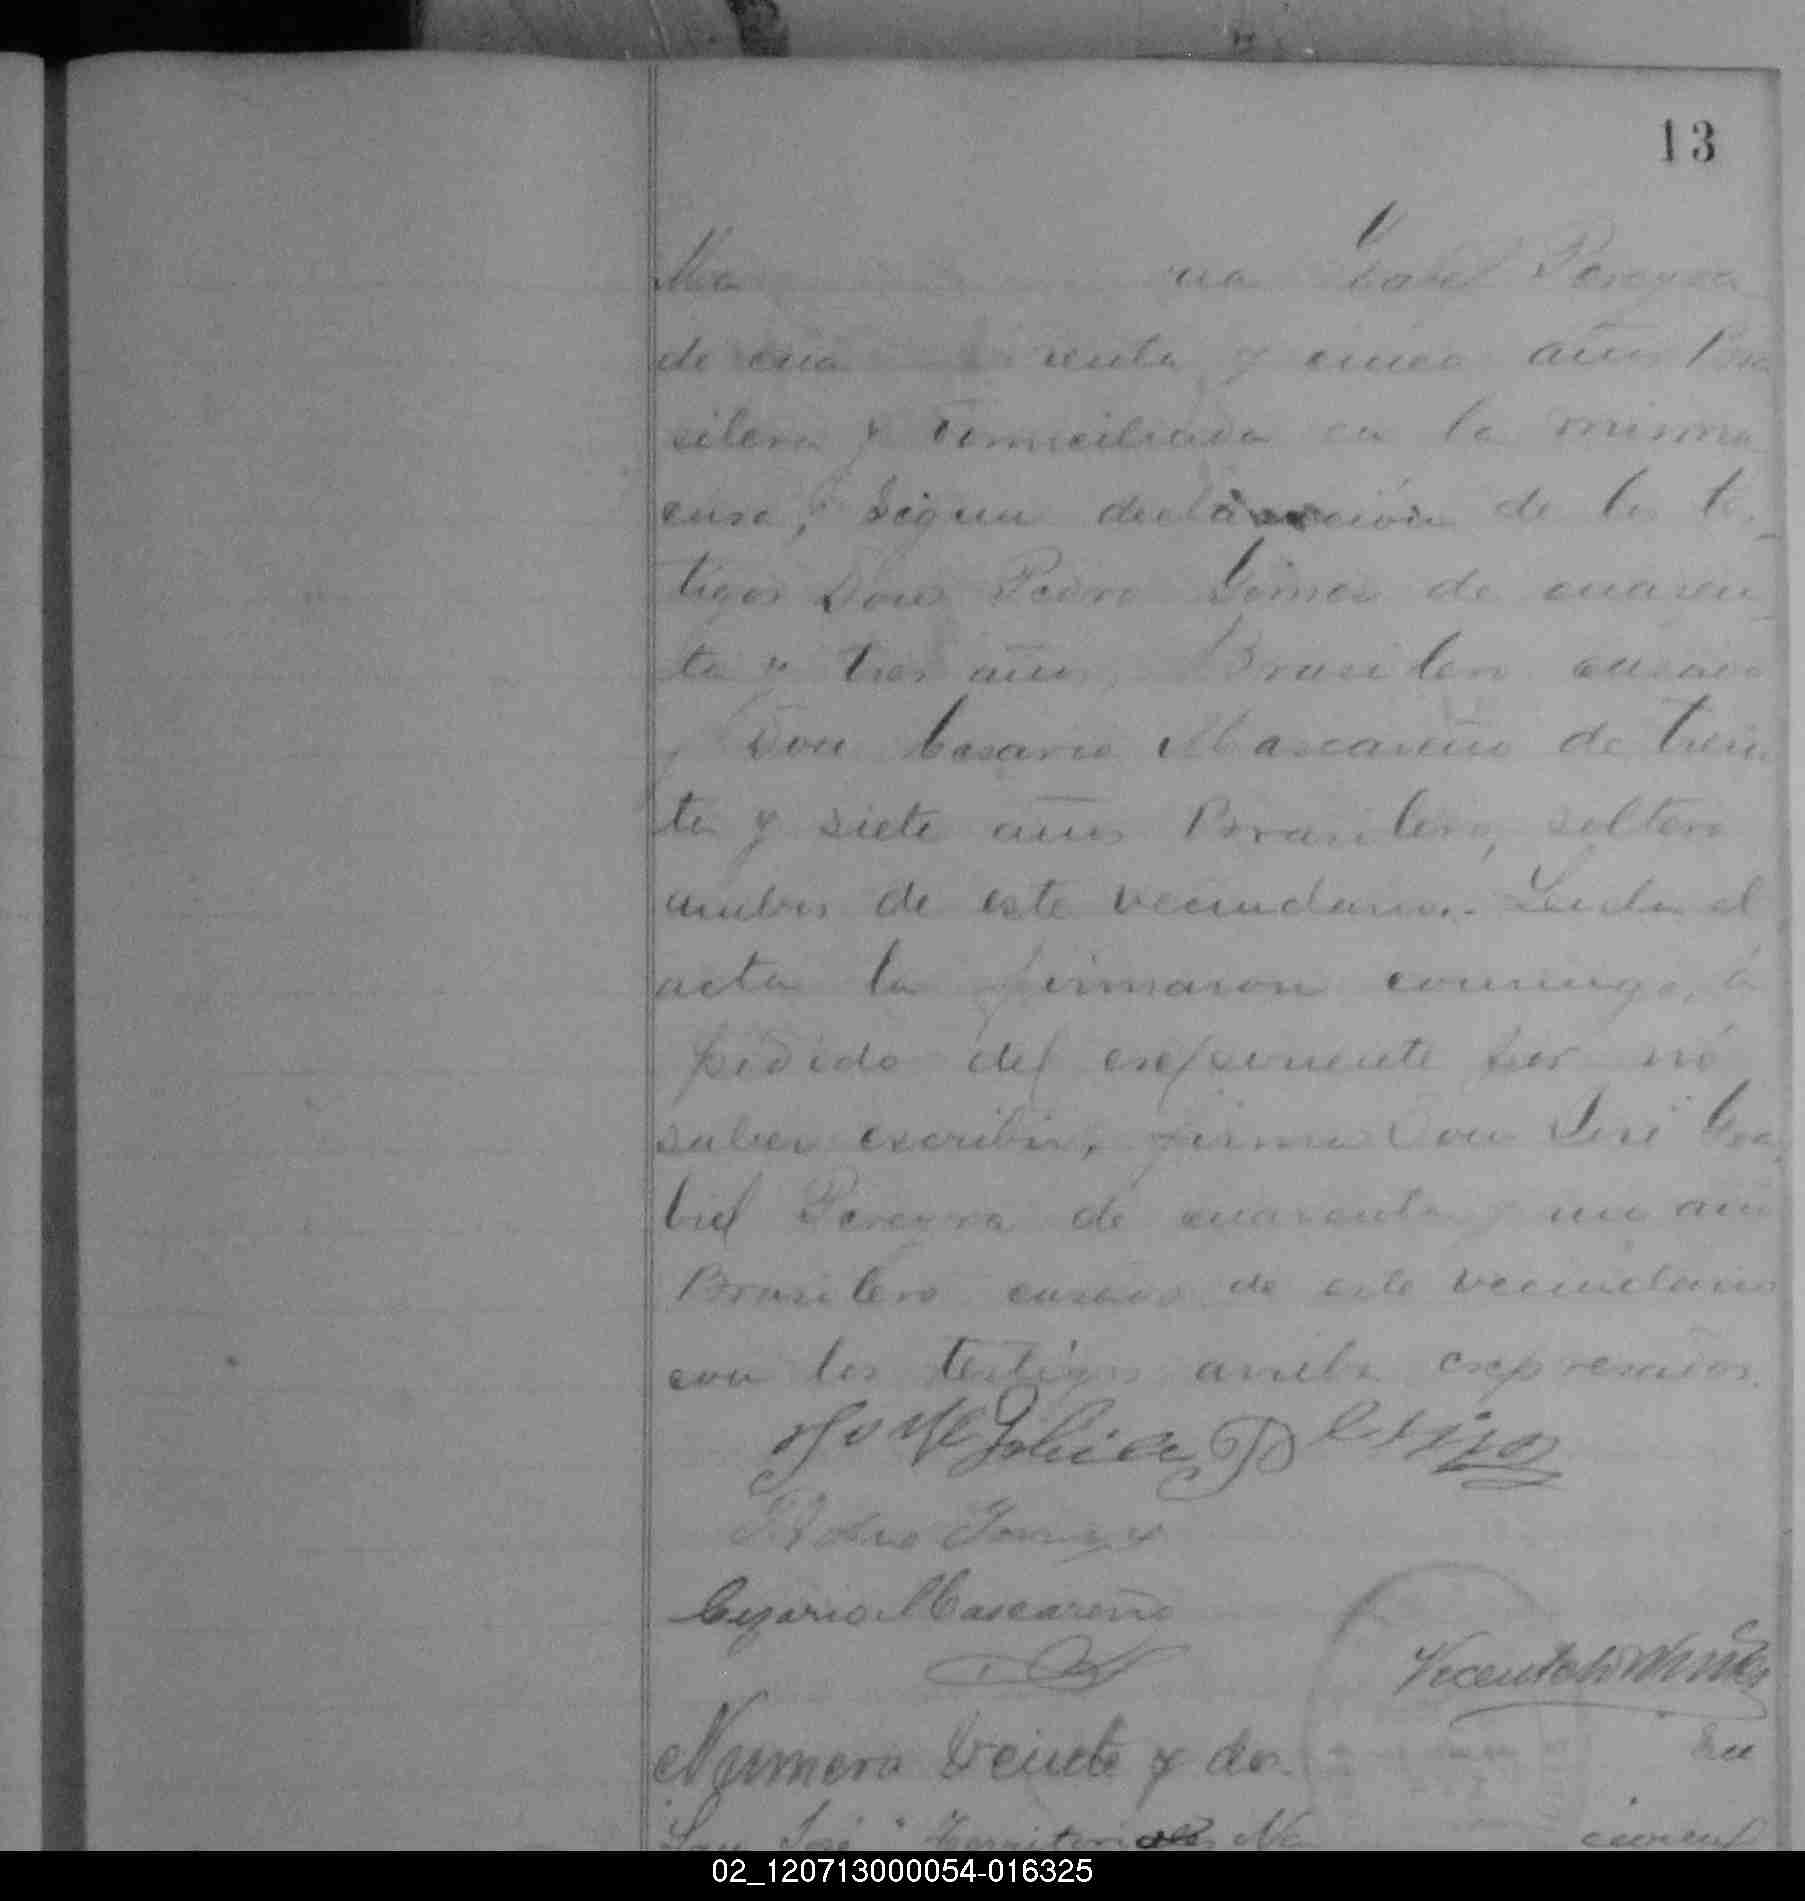 13
Ma na Pereyra
de cua renta y cinco años Bra
silera y domiciliada en la misma
casa, segun declaración de los tes-
tigos Don Pedro Gomes de cuaren
ta y tres años, Brasilero casado
y Don Cesario Mascareño de trein
ta y siete años Brasilero, soltero
ambos de este vecindario.- Leida el
acta la firmaron conmigo, á
pedido del exponente por nó
saber escribir, firma Don José Ga
briel Pereyra de cuarenta y un año
Brasilero casado de este vecindario
con los testigos arriba expresados.
Pedro Gomez
Cezario Mascareño
Numero Veinte y dos. En
San José Territorio
02_120713000054-016325